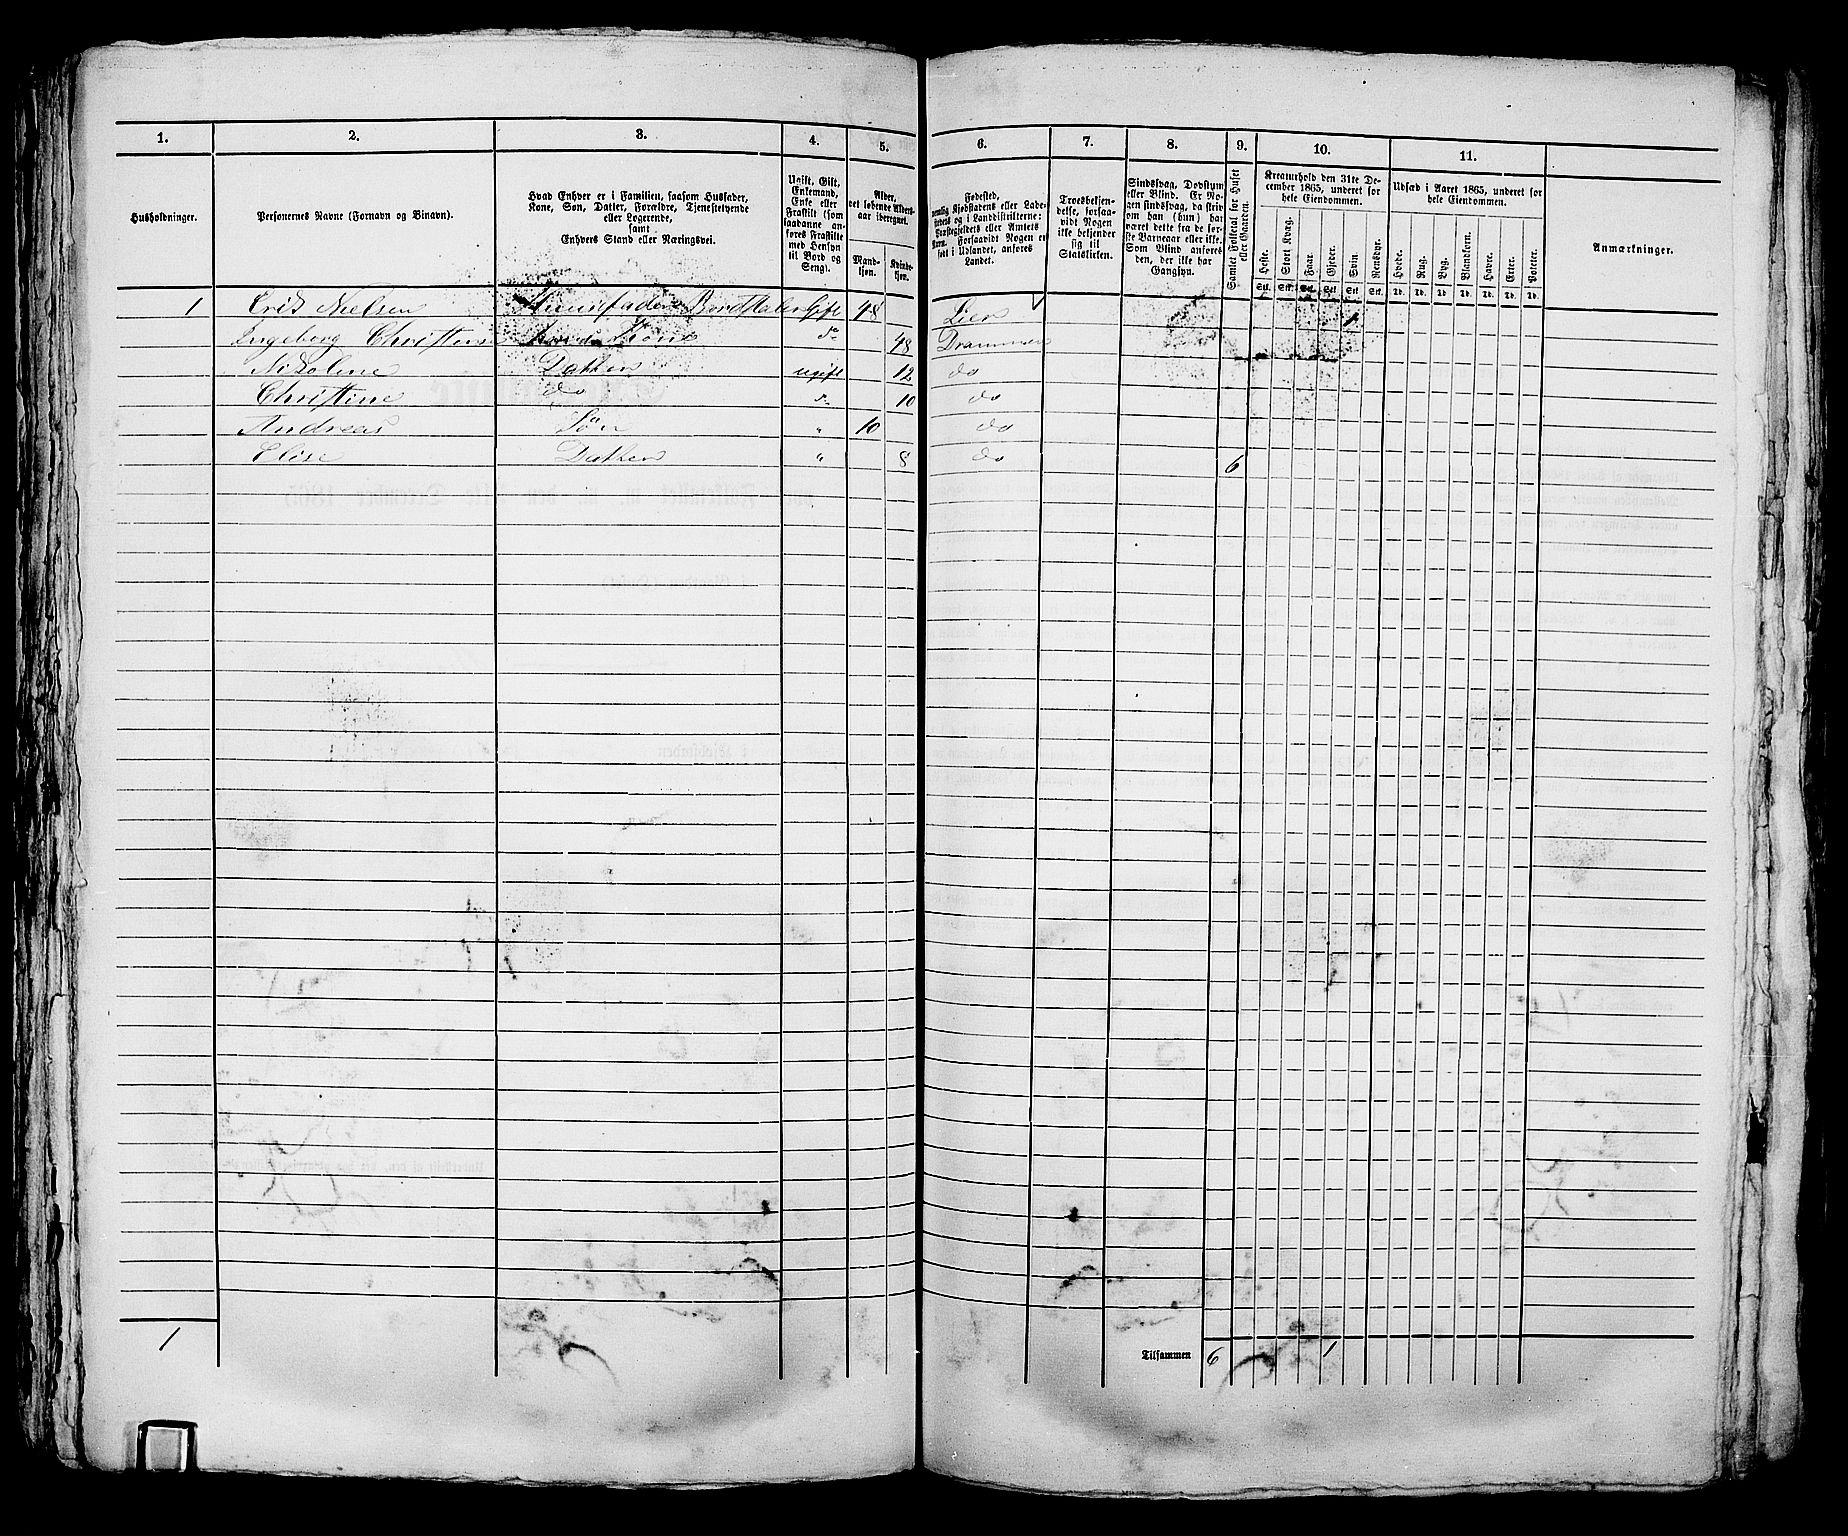 1. 2. 3. 4. 5. 6. 7. 8. 9. 10. 11.
Husholdninger.
Personernes Navne (Fornavn og Binavn).
Hvad Enhver er i Familien, saasom Husfader,
Kone, Søn, Datter, Forældre, Tjenestetyende
eller Logerende,
samt
Enhvers Stand eller Næringsvei.
Ugift, Gift,
Enkemand,
Enke eller
Fraskilt (som
saadanne an-
føres Fraskilte
med Hensyn
til Bord og
Seng).
Alder,
det løbende Alders-
aar iberegnet.
Mand-
kjøn.
Kvinde-
kjøn.
Fødested,
nemlig Kjøbstadens eller Lade-
stedets og i Landdistrikterne:
Præstegjeldets eller Amtets
Navn. Forsaavidt Nogen er
født i Udlandet, anføres
Landet.
Troesbekjen-
delse, forsaa-
vidt Nogen
ikke bekjender
sig til
Statskirken.
Sindssvag, Døvstum
eller Blind. Er No-
gen sindssvag, da skriv
om han (hun) har
været dette fra de før-
ste Barneaar eller ikke.
Som Blind anføres
den, der ikke har
Gangsyn.
Samlet Folketal for Huset
eller Gaarden.
Kreaturhold den 31te De-
cember 1865, underet for
hele Eiendommen.
Heste.
Stort Kvæg.
Faar.
Gjeder.
Svin.
Rensdyr.
Stk. Stk. Stk. Stk. Stk. Stk.
Udsæd i Aaret 1865, underet for
hele Eiendommen.
Hvede.
Rug.
Byg.
Blandkorn.
Havre.
Erter.
Poteter.
Td. Td. Td. Td. Td. Td. Td.
Anmærkninger.
1 Erik Nielsen Huusfader Gift 48 Lier 1
Ingeborg Christens Kone do 48 Drammen
Nikoline Datter ugift 12 do
Christine do do 10 do
Andreas Søn " 10 do
Elise Datter " 8 do 6
1 Tilsammen 6 1